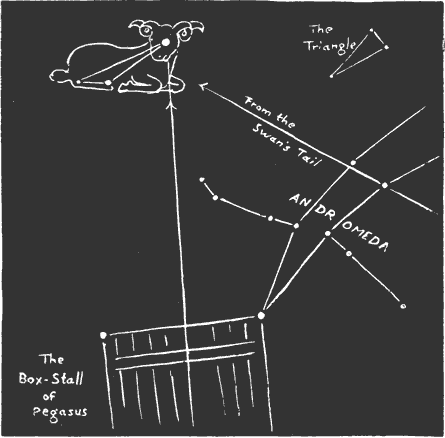 The
Triangle
From the
Swan's Tail
ANDROMEDA
The
Box-Stall
of
Pegasus